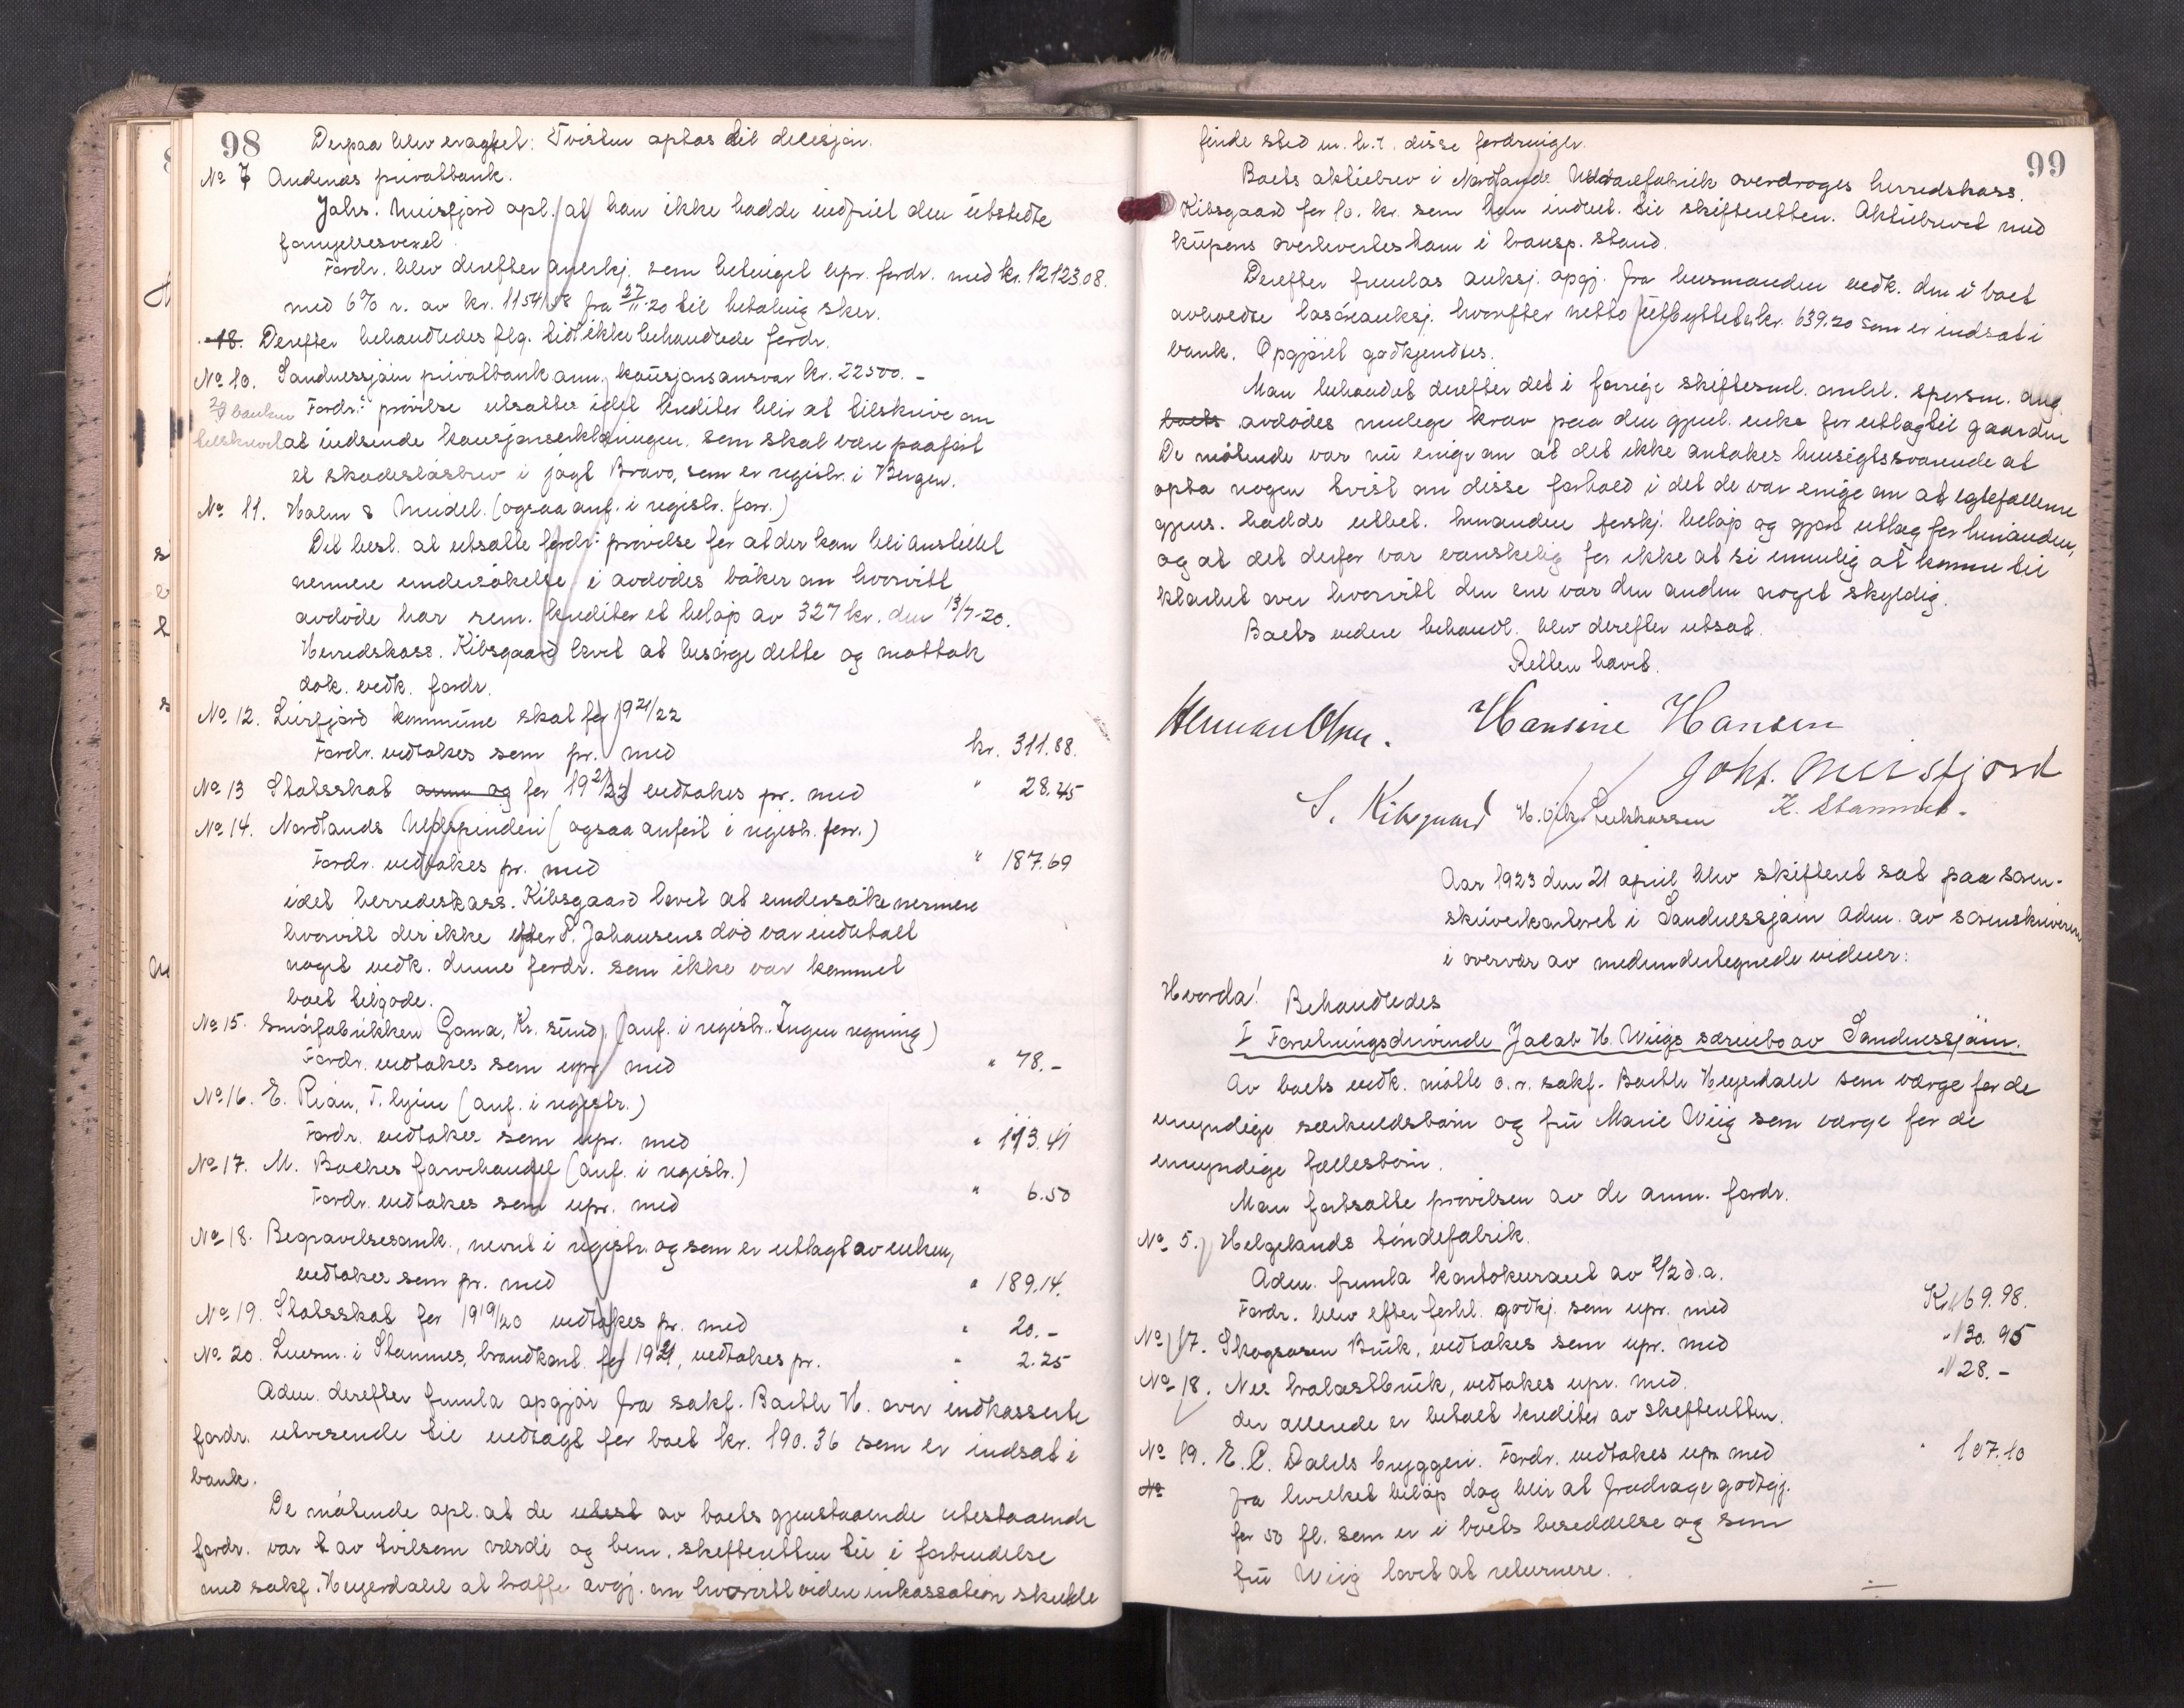 98
Derpaa blev eragtet: Tvisten optas til decisjon.
No 7 Andenæs privatbank.
Johs. Meisfjord opl. at han ikke hadde indfriet den utstedte
fornyelsesvexel.
Fordr. blev derefter anerkj. som betinget upr. fordr. med kr. 12123.08.
med 6% r. av kr. 11541.58 fra 27/11-20 til betaling sker.
18. Derefter behandledes flg. tidl. ikke behandlede fordr.
No 10. Sandnessjøen privatbank anm. kausjonsansvar kr. 22500.-
Fordr.s prøvelse utsattes idet kreditor blir at tilskrive om
at indsende kausjonserklæringen, som skal være paaført
et skadesløsbrev i jagt Bravo, som er registr. i Bergen.
banken
tilskrevet
No 11. Holm & Meidel. (ogsaa anf. i registr. forr.)
Det besl. at utsætte fordr.s prøvelse for at der kan bli anstillet
nermere undersøkelse i avdødes bøker om hvorvidt
avdøde har rem. kreditor et beløp av 327 kr. den 13/7-20.
Herredskass. Kibsgaard lovet at besørge dette og mottok
dok. vedk. fordr.
No 12. Leirfjord kommune skat for 1921/22
Fordr. vedtokes som pr. med kr. 311.88.
No 13 Statsskat anm og for 1921/22 vedtokes pr. med " 28.45
No 14. Nordlands Uldspinderi (ogsaa anført i registr. forr.)
Fordr. vedtokes pr. med " 187.69
idet herredskass. Kibsgaard lovet at undersøke nermere
hvorvidt der ikke efter P. Johansens død var indbetalt
noget vedk. denne fordr. som ikke var kommet
boet tilgode.
No 15. Smørfabrikken Gama, Kr. sund, (anf. i registr. Ingen regning)
Fordr. vedtokes som upr. med " 78.-
No 16. E. Rian, T. hjem (anf. i registr.)
Fordr. vedtokes som upr. med " 113.41
No 17. M. Backes farvehandel (anf. i registr.)
Fordr. vedtokes som upr. med " 6.50
No 18. Begravelsesomk., nevnt i registr. og som er utlagt av enken,
vedtokes som pr. med " 189.14.
No 19. Statsskat for 1919/20 vedtokes pr. med " 20.-
No 20. Lensm. i Stamnes, brandkont. for 1921, vedtokes pr. " 2.25
Adm. derefter fremla opgjør fra sakf. Barth H. over indkasserte
fordr. utvisende til indtægt for boet kr. 190.36 som er indsat i
bank.
De møtende opl. at de utest av boets gjenstaaende utestaaende
fordr. var t av tvilsom værdi og bem. skifteretten til i forbindelse
med sakf. Heyerdahl at træffe avgj. om hvorvidt videre inkassation skulde
99
finde sted m. h. t. disse fordringer.
Boets aktiebrev i Nordlands Uldvarefabrik overdroges herredskass.
Kibsgaard for 10. kr. som han indbet. til skifteretten. Aktiebrevet med
kupons overleveredes ham i transp. stand.
Derefter fremlas auksj. opgj. fra lensmanden vedk. den i boet
avholdte løsøreauksj. hvorefter netto utbyttet er kr. 639.20 som er indsat i
bank. Opgjøret godkjendtes.
Man behandlet derefter det i forrige skiftesaml. omhl. spørsm. ang.
boets avdødes mulige krav paa den gjenl. enke for utlæg til gaarden
De møtende var nu enige om at det ikke antokes hensigtssvarende at
opta nogen tvist om disse forhold i det de var enige om at egtefællerne
gjens. hadde utbet. hinanden forskj. beløp og gjort utlæg for hinanden,
og at det derfor var vanskelig for ikke at si umulig at komme til
klarhet over hvorvidt den ene var den anden noget skyldig.
Boets videre behandl. blev derefter utsat.
Retten hævet.
Herman Olsen. Hansine Hansen
Johs. Meisfjord
S. Kibsgaard K. Stamnes.
Aar 1923 den 21 april blev skifteret sat paa soren-
skriverkontoret i Sandnessjøen adm. av sorenskriveren
i overvær av medundertegnede vidner:
Hvorda! Behandledes
I Forretningsdrivende Jacob H. Wiigs særeiebo av Sandnessjøen.
Av boets vedk. møtte o. r. sakf. Barth Heyerdahl som værge for de
umyndige særkuldsbørn og fru Marie Wiig som værge for de
umyndige fællesbørn.
Man fortsatte prøvelsen av de anm. fordr.
No 5. Helgelands tøndefabrik.
Adm. fremla kontokurant av 2/2 d.a.
Fordr. blev efter forhl. godkj. som upr. med Kr. 169.98.
No 17. Skogsosen Bruk, vedtokes som upr. med " 130.95
No 18. Nes trælastbruk, vedtokes upr. med. " 128.-
der allerede er betalt kreditor av skifteretten.
No 19. E. C. Dahls bryggeri. Fordr. vedtokes upr med " 107.10
No fra hvilket beløp dog blir at fradrage godtgj.
for 50 fl. som er i boets besiddelse og som
fru Wiig lovet at returnere.